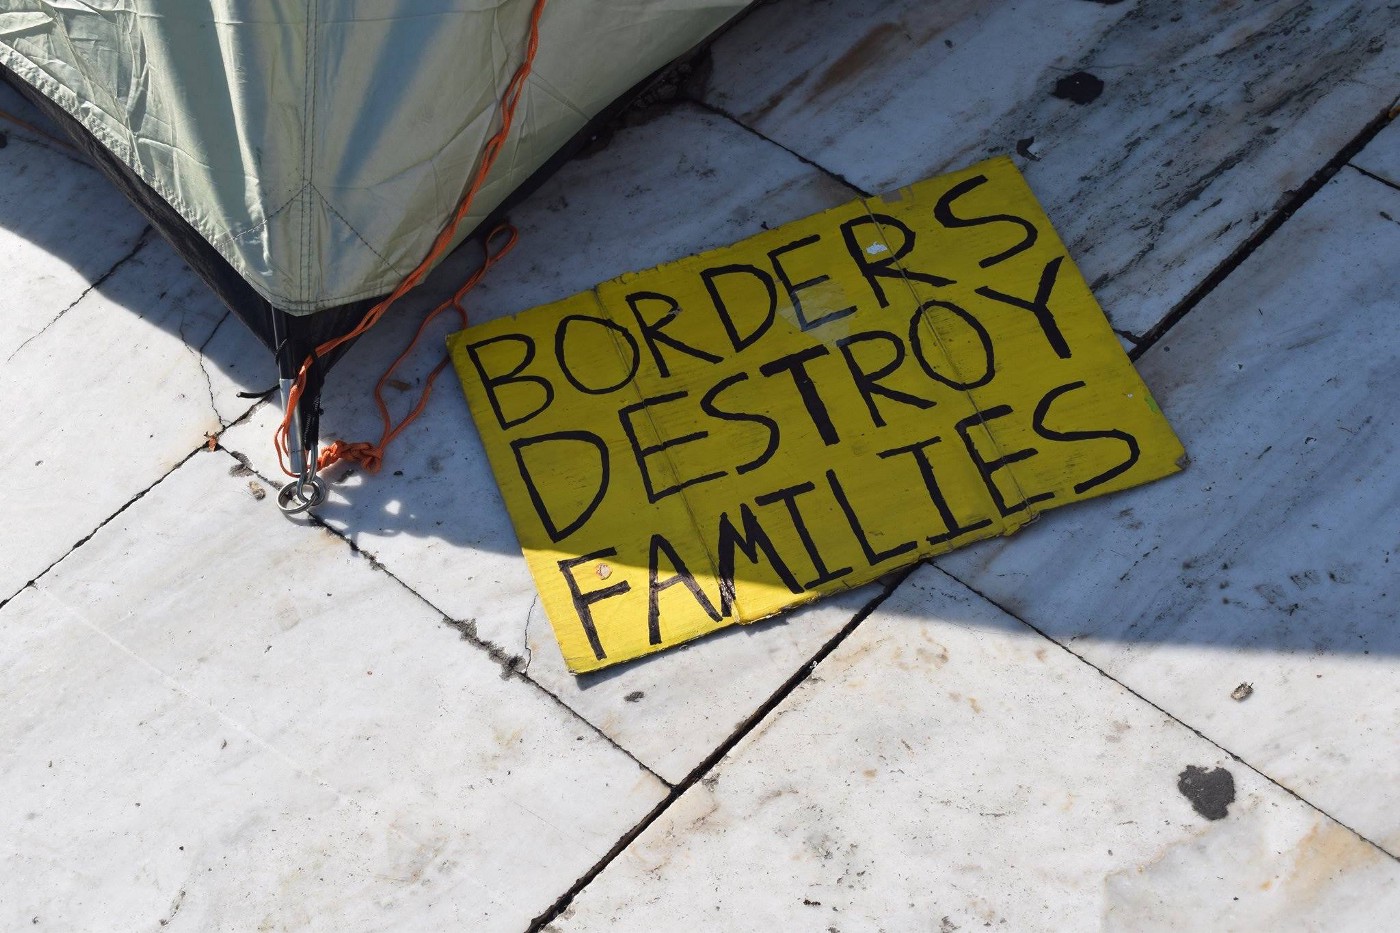 BORDERS
DESTROY
FAMILIES